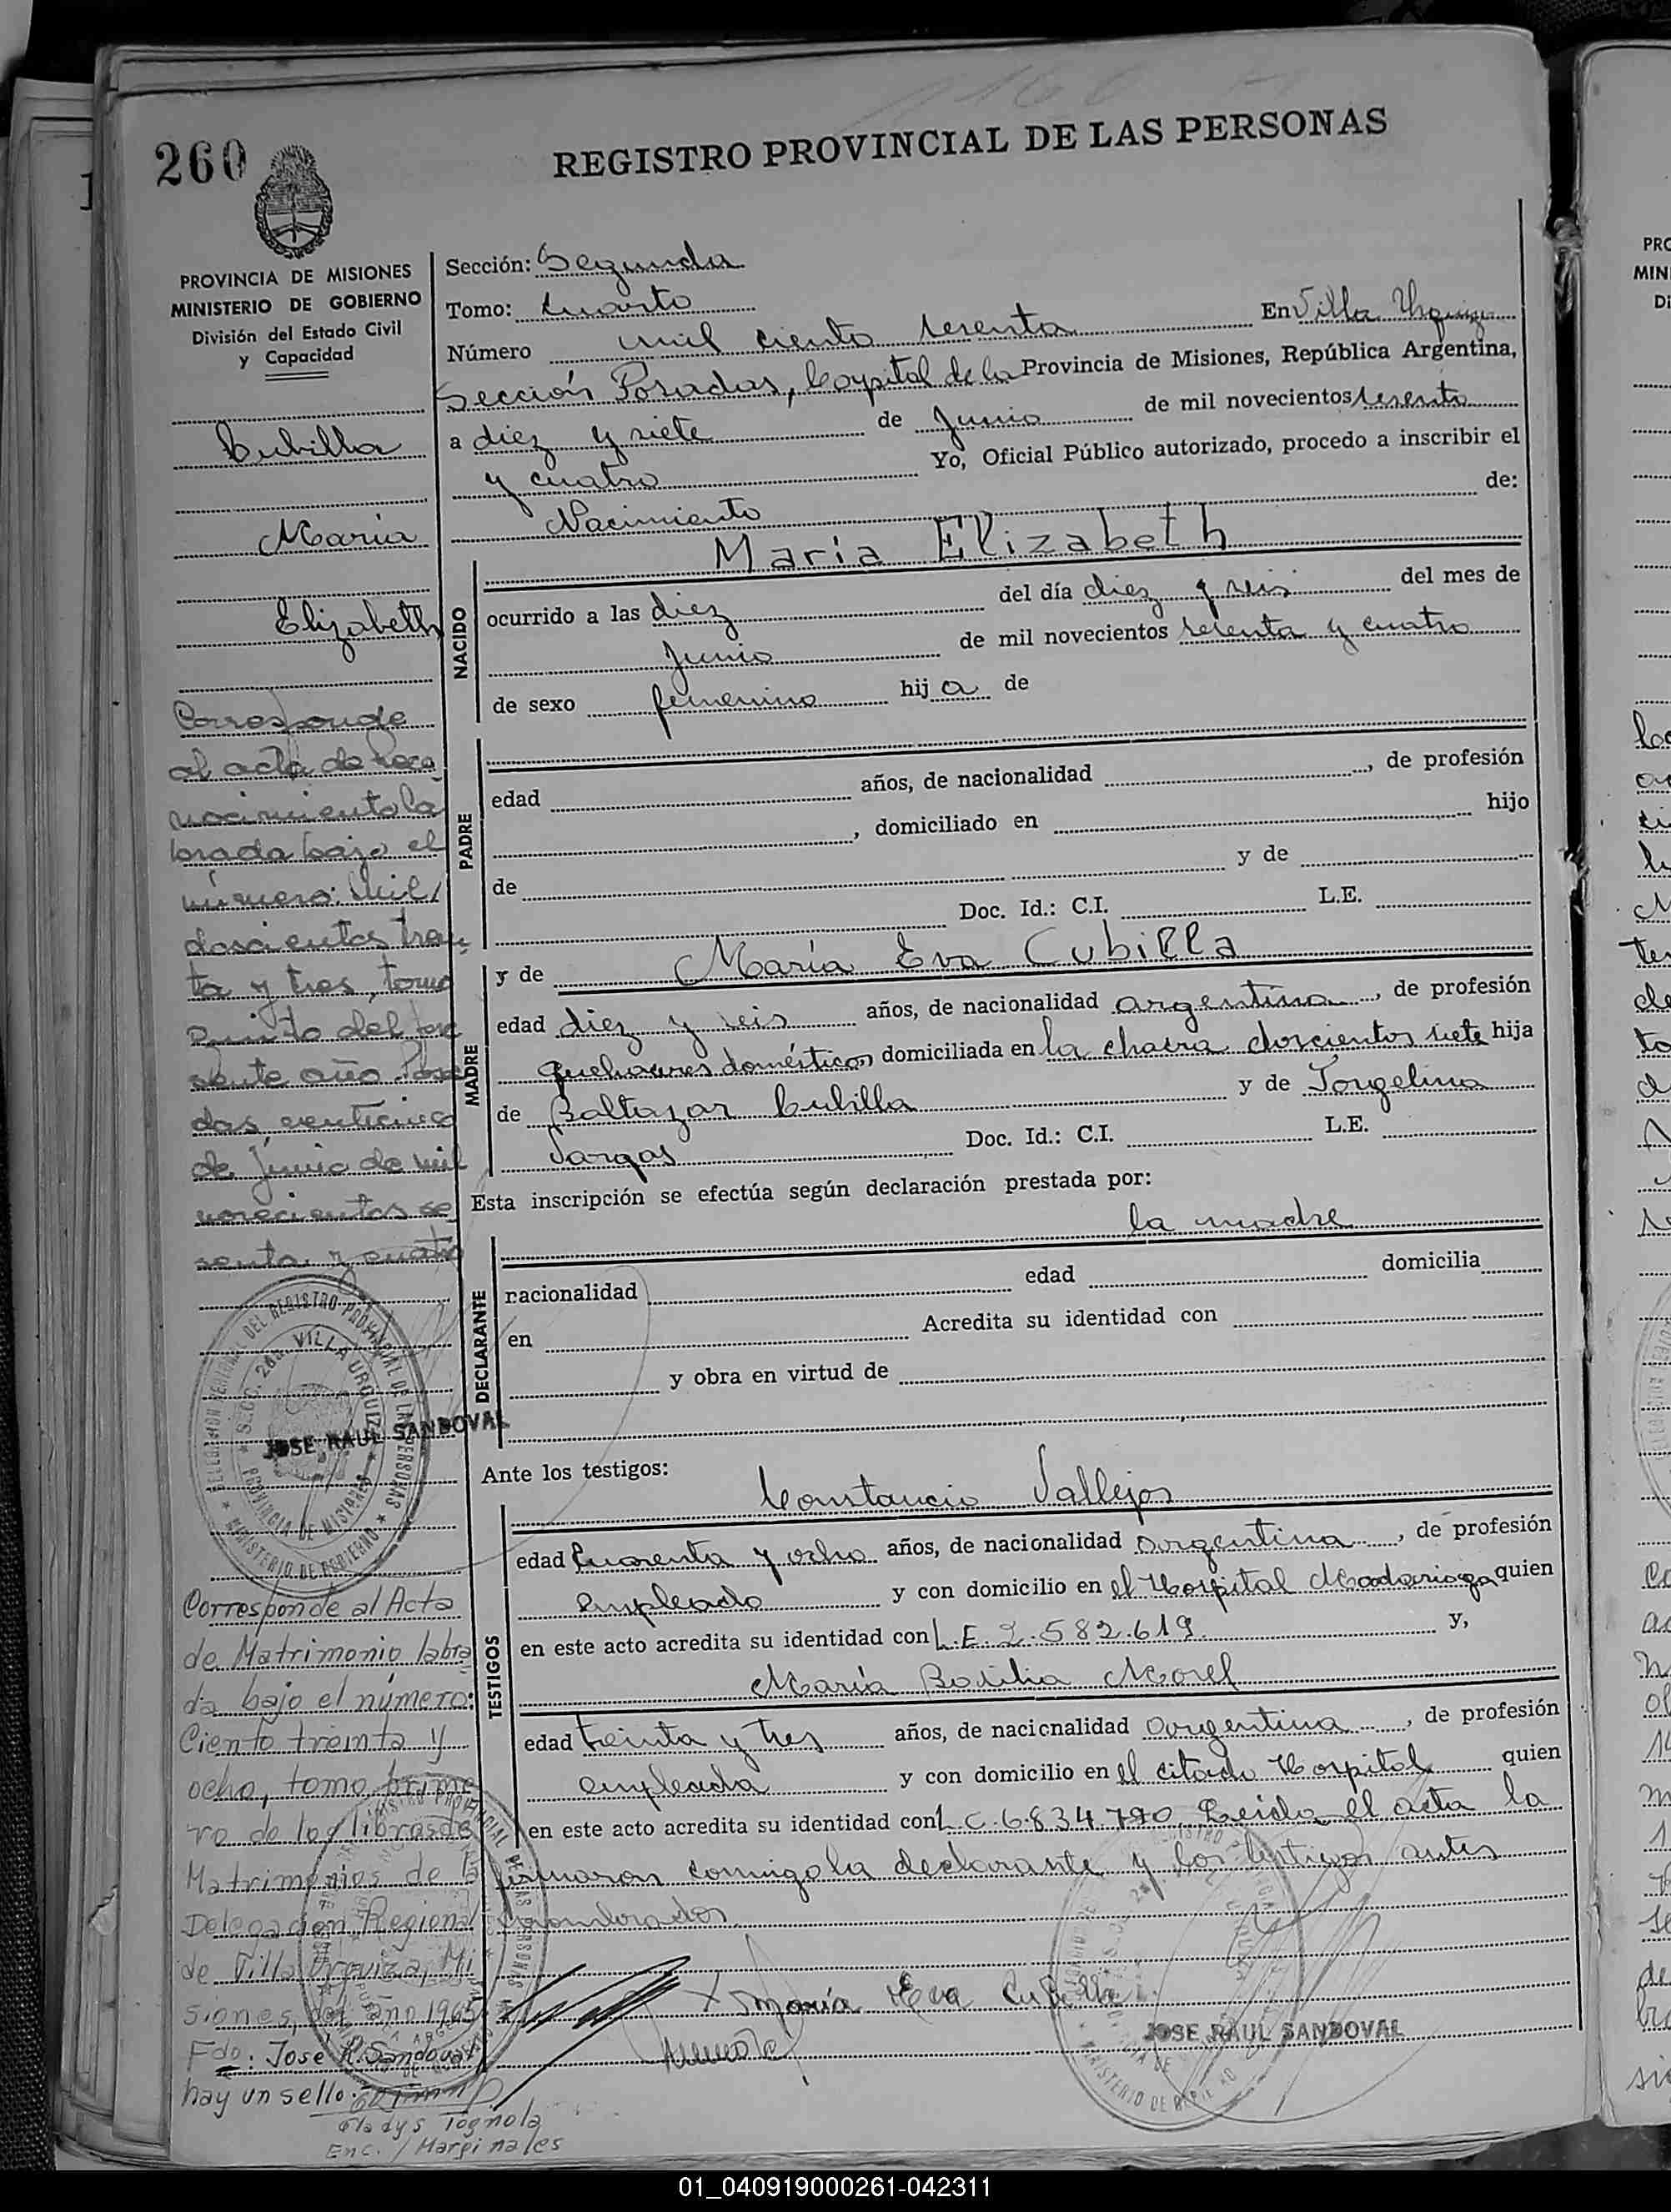 260
REGISTRO PROVINCIAL DE LAS PERSONAS
PROVINCIA DE MISIONES
MINISTERIO DE GOBIERNO
División del Estado Civil
y Capacidad
Cubilla
María
Elizabeth
Corresponde
al acta de reco
nocimiento la
brada bajo el
número: Mil
doscientos trein
ta y tres, tomo
Quinto del pre
sente año. Posa
das, venticinco
de Junio de mil
novecientos se
senta y cuatro
DELEGACION REGIONAL DEL REGISTRO PROVINCIAL DE LAS PERSONAS
SECC. 2da. VILLA URQUIZA
PROVINCIA DE MISIONES
MINISTERIO DE GOBIERNO
JOSE RAUL SANDOVAL
Corresponde al Acta
de Matrimonio labra
da bajo el número:
Ciento treinta y
ocho, tomo prime
ro de los libros de
Matrimonios de la
Delegación Regional
de Villa Urquiza, Mi
siones, del año 1965
Fdo: José R. Sandoval
hay un sello.
Gladys Tognola
Enc. / Marginales
Sección: Segunda
Tomo: Cuarto
Número mil ciento sesenta En Villa Urquiza
Sección Posadas, Capital de la Provincia de Misiones, República Argentina,
a diez y siete de Junio de mil novecientos sesenta
y cuatro Yo, Oficial Público autorizado, procedo a inscribir el
Nacimiento de:
NACIDO
María Elizabeth
ocurrido a las diez del día diez y seis del mes de
Junio de mil novecientos sesenta y cuatro
de sexo femenino hij a de
PADRE
edad años, de nacionalidad , de profesión
, domiciliado en hijo
de y de
Doc. Id.: C.I. L.E.
MADRE
y de María Eva Cubilla
edad diez y seis años, de nacionalidad argentina , de profesión
quehaceres domésticos domiciliada en la chacra doscientos siete hija
de Baltazar Cubilla y de Jorgelina
Vargas Doc. Id.: C.I. L.E.
Esta inscripción se efectúa según declaración prestada por:
DECLARANTE
la madre
racionalidad edad domicilia
en Acredita su identidad con
y obra en virtud de
Ante los testigos:
TESTIGOS
Constancio Vallejos
edad Cuarenta y ocho años, de nacionalidad argentina , de profesión
empleado y con domicilio en el Hospital Madariaga quien
en este acto acredita su identidad con L.E. 2.582.619 y,
María Morel
edad treinta y tres años, de nacicnalidad argentina , de profesión
empleada y con domicilio en el citado Hospital quien
en este acto acredita su identidad con L.C. 6.834.790 Leida el acta la
firmaron conmigo la declarante y los testigos antes
nombrados
X María Eva Cubilla
JOSE RAUL SANDOVAL
01_040919000261-042311